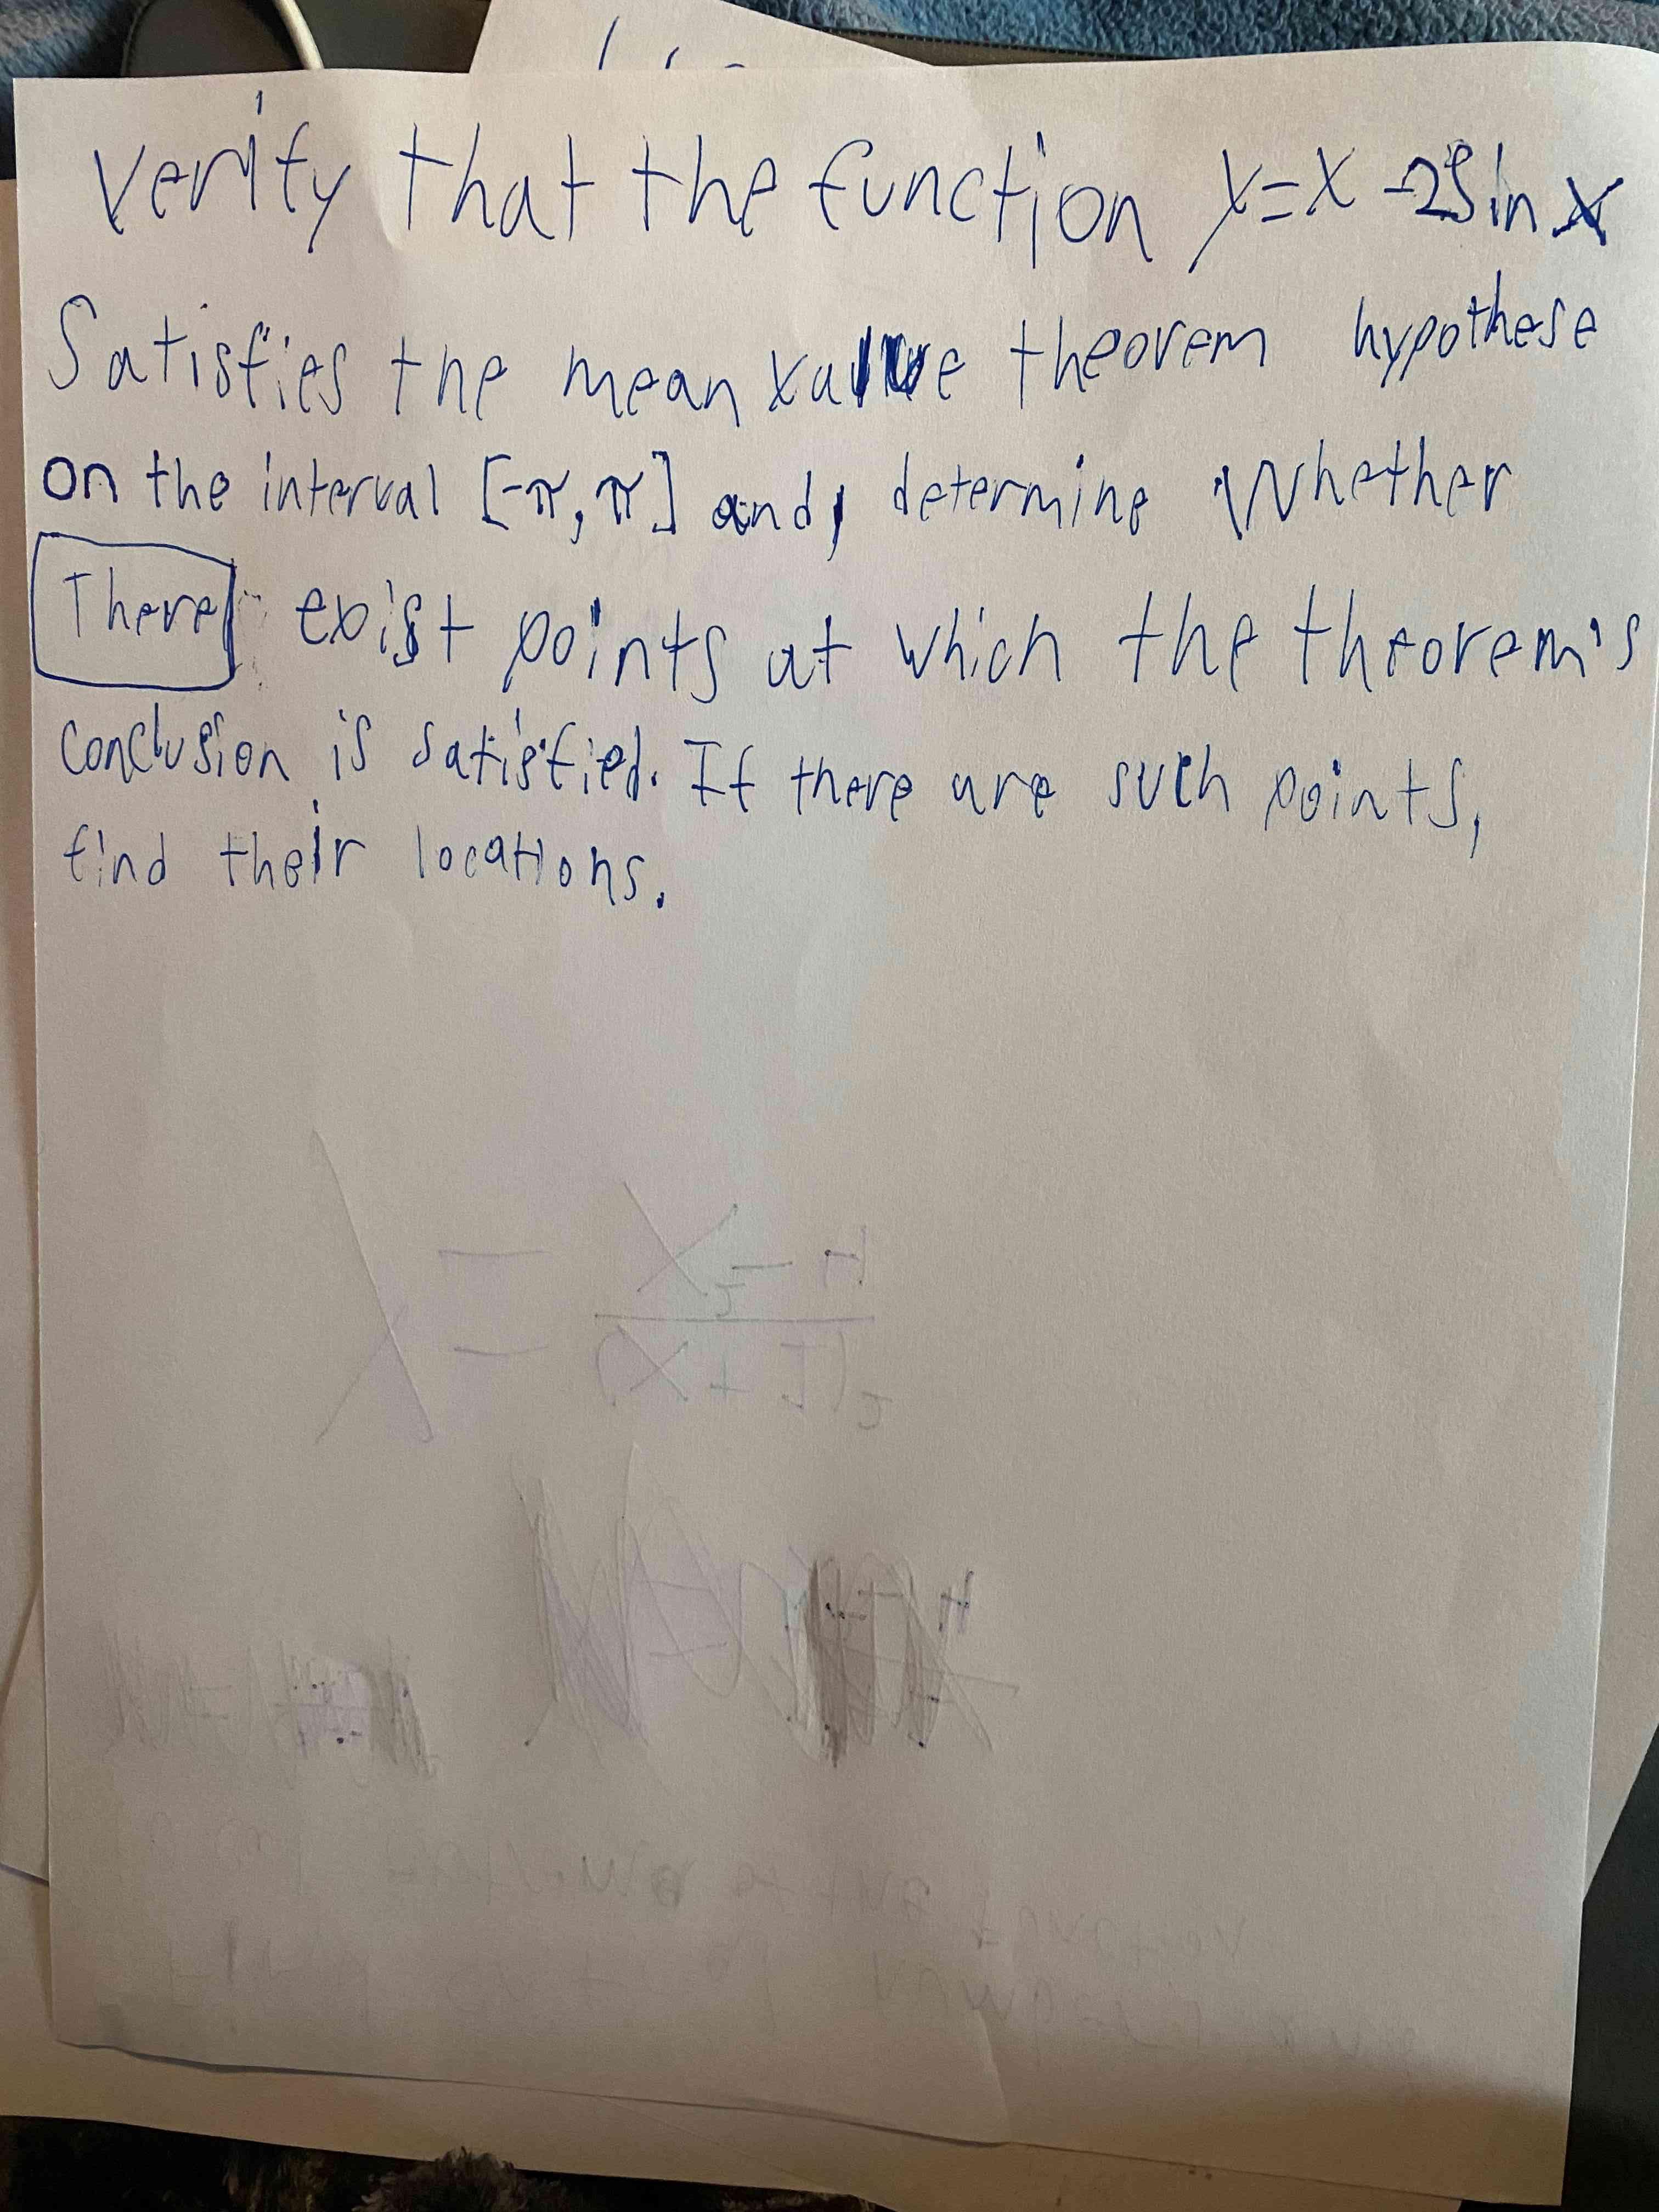 Verify that the function y=x-2sinx
Satisfies the mean value theorem hypothese
on the interval [-π, π] and, determine whether
There exist points at which the theorem's
conclusion is satisfied. If there are such points,
find their locations.